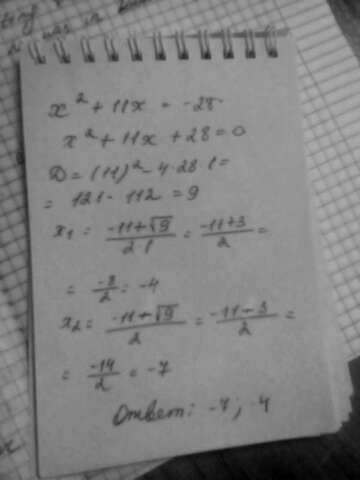 x² + 11x = -28
x² + 11x + 28 = 0
D = (11)² - 4·28·1 =
= 121 - 112 = 9
x₁ = (-11+√9)/(2·1) = (-11+3)/2 =
= -8/2 = -4
x₂ = (-11+√9)/2 = (-11-3)/2 =
= -14/2 = -7
Ответ: -7; 4